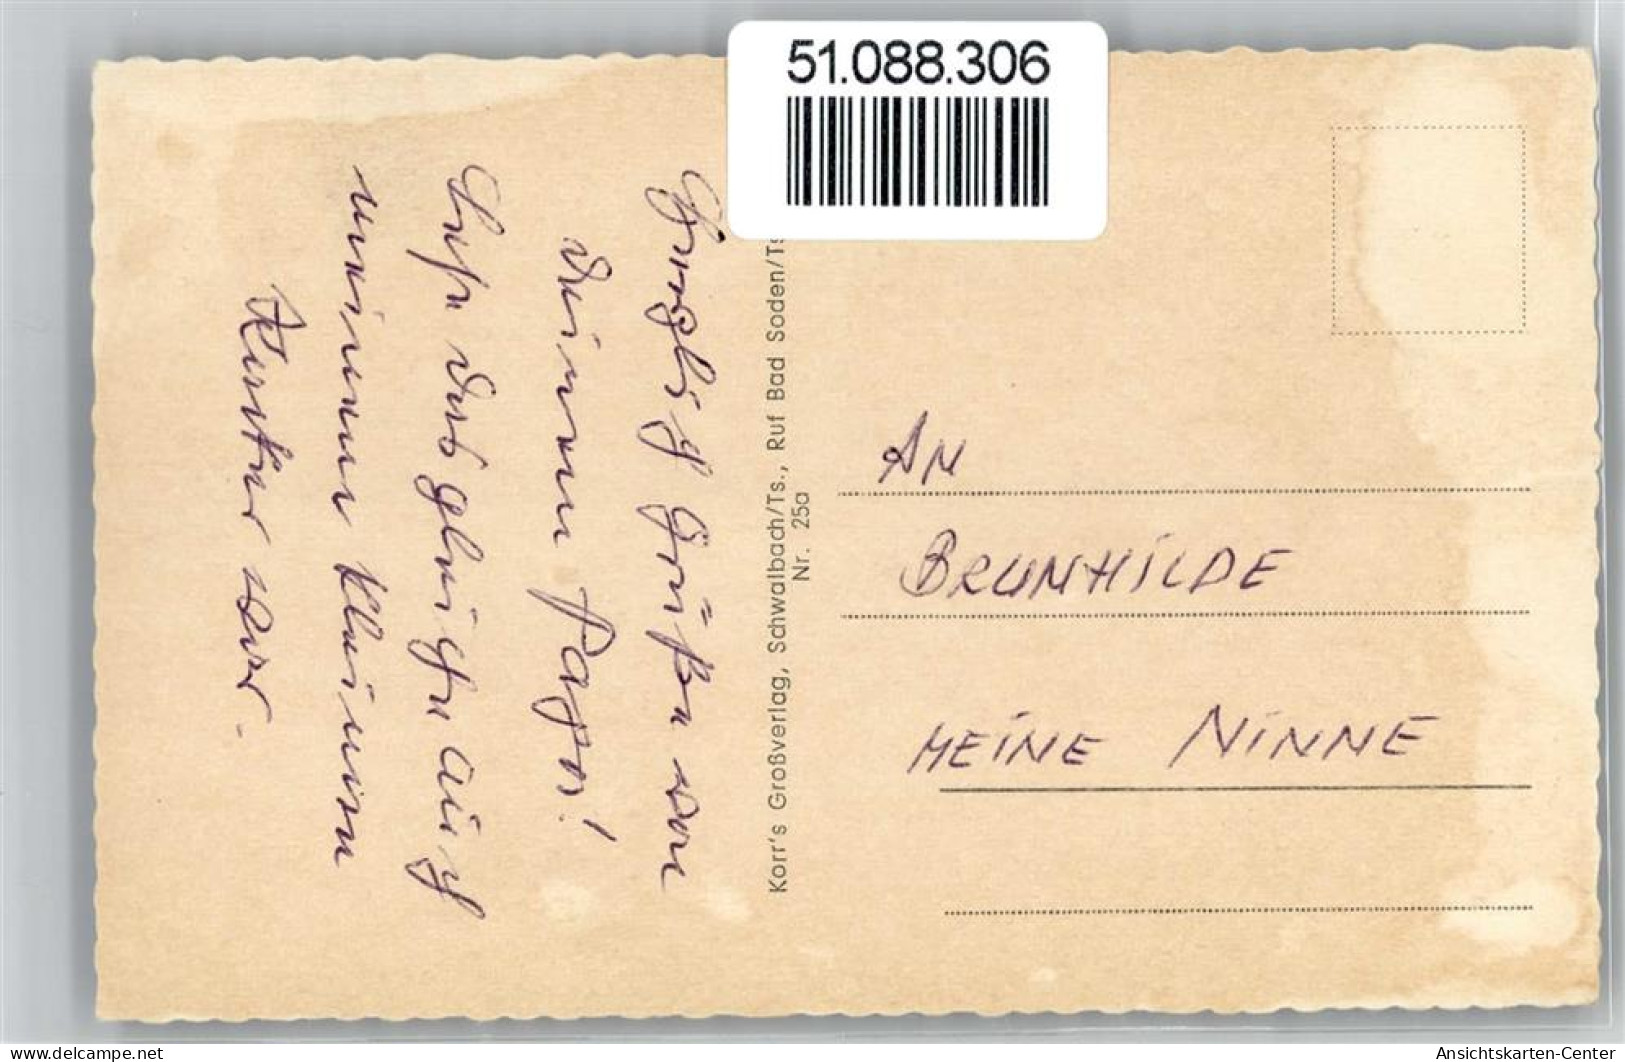 51.088.306
Herzlich Grüße von
deinem Papa!
das gleiche auch
meinem kleinen
Korr's Großverlag, Schwalbach/Ts., Ruf Bad Soden/Ts
Nr. 25a
AN
BRUNHILDE
MEINE NINNE
www.delcampe.net
Ansichtskarten-Center